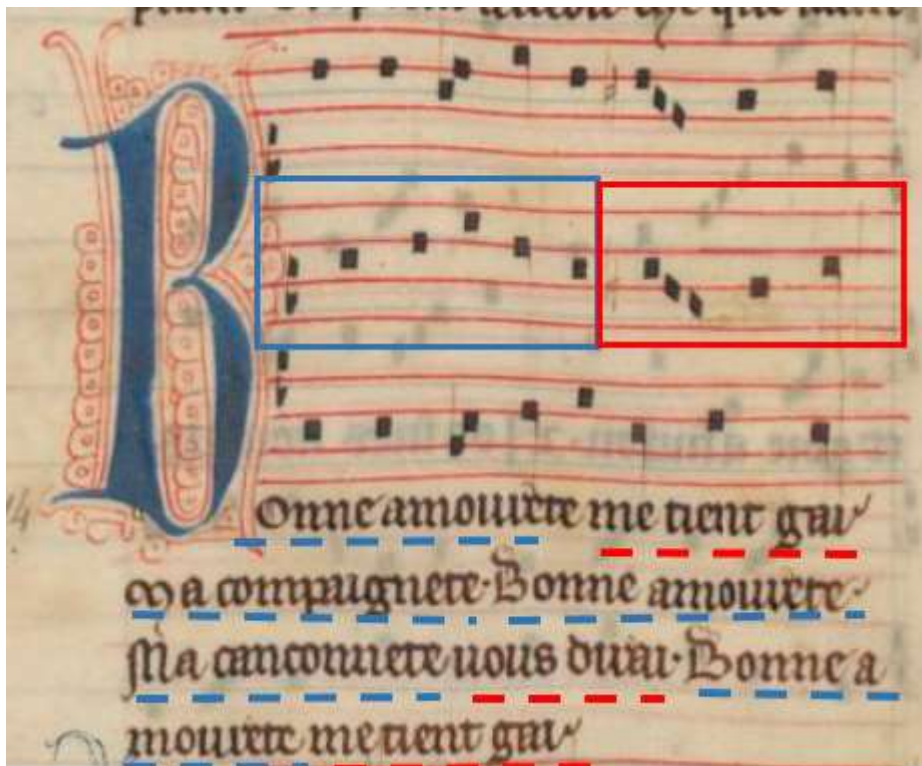 Bonne amourete me tient gai
Ma compaignete · Bonne amourete ·
Ma canconnete uous dirai · Bonne a
mourete me tient gai